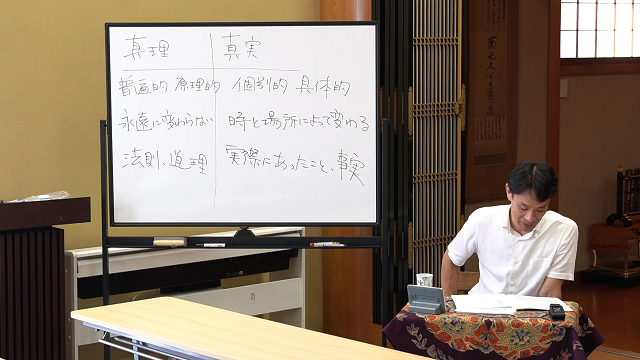 真理 真実
普遍的 原理的 個別的 具体的
永遠に変わらない 時と場所によって変わる
法則、道理 実際にあったこと、事実